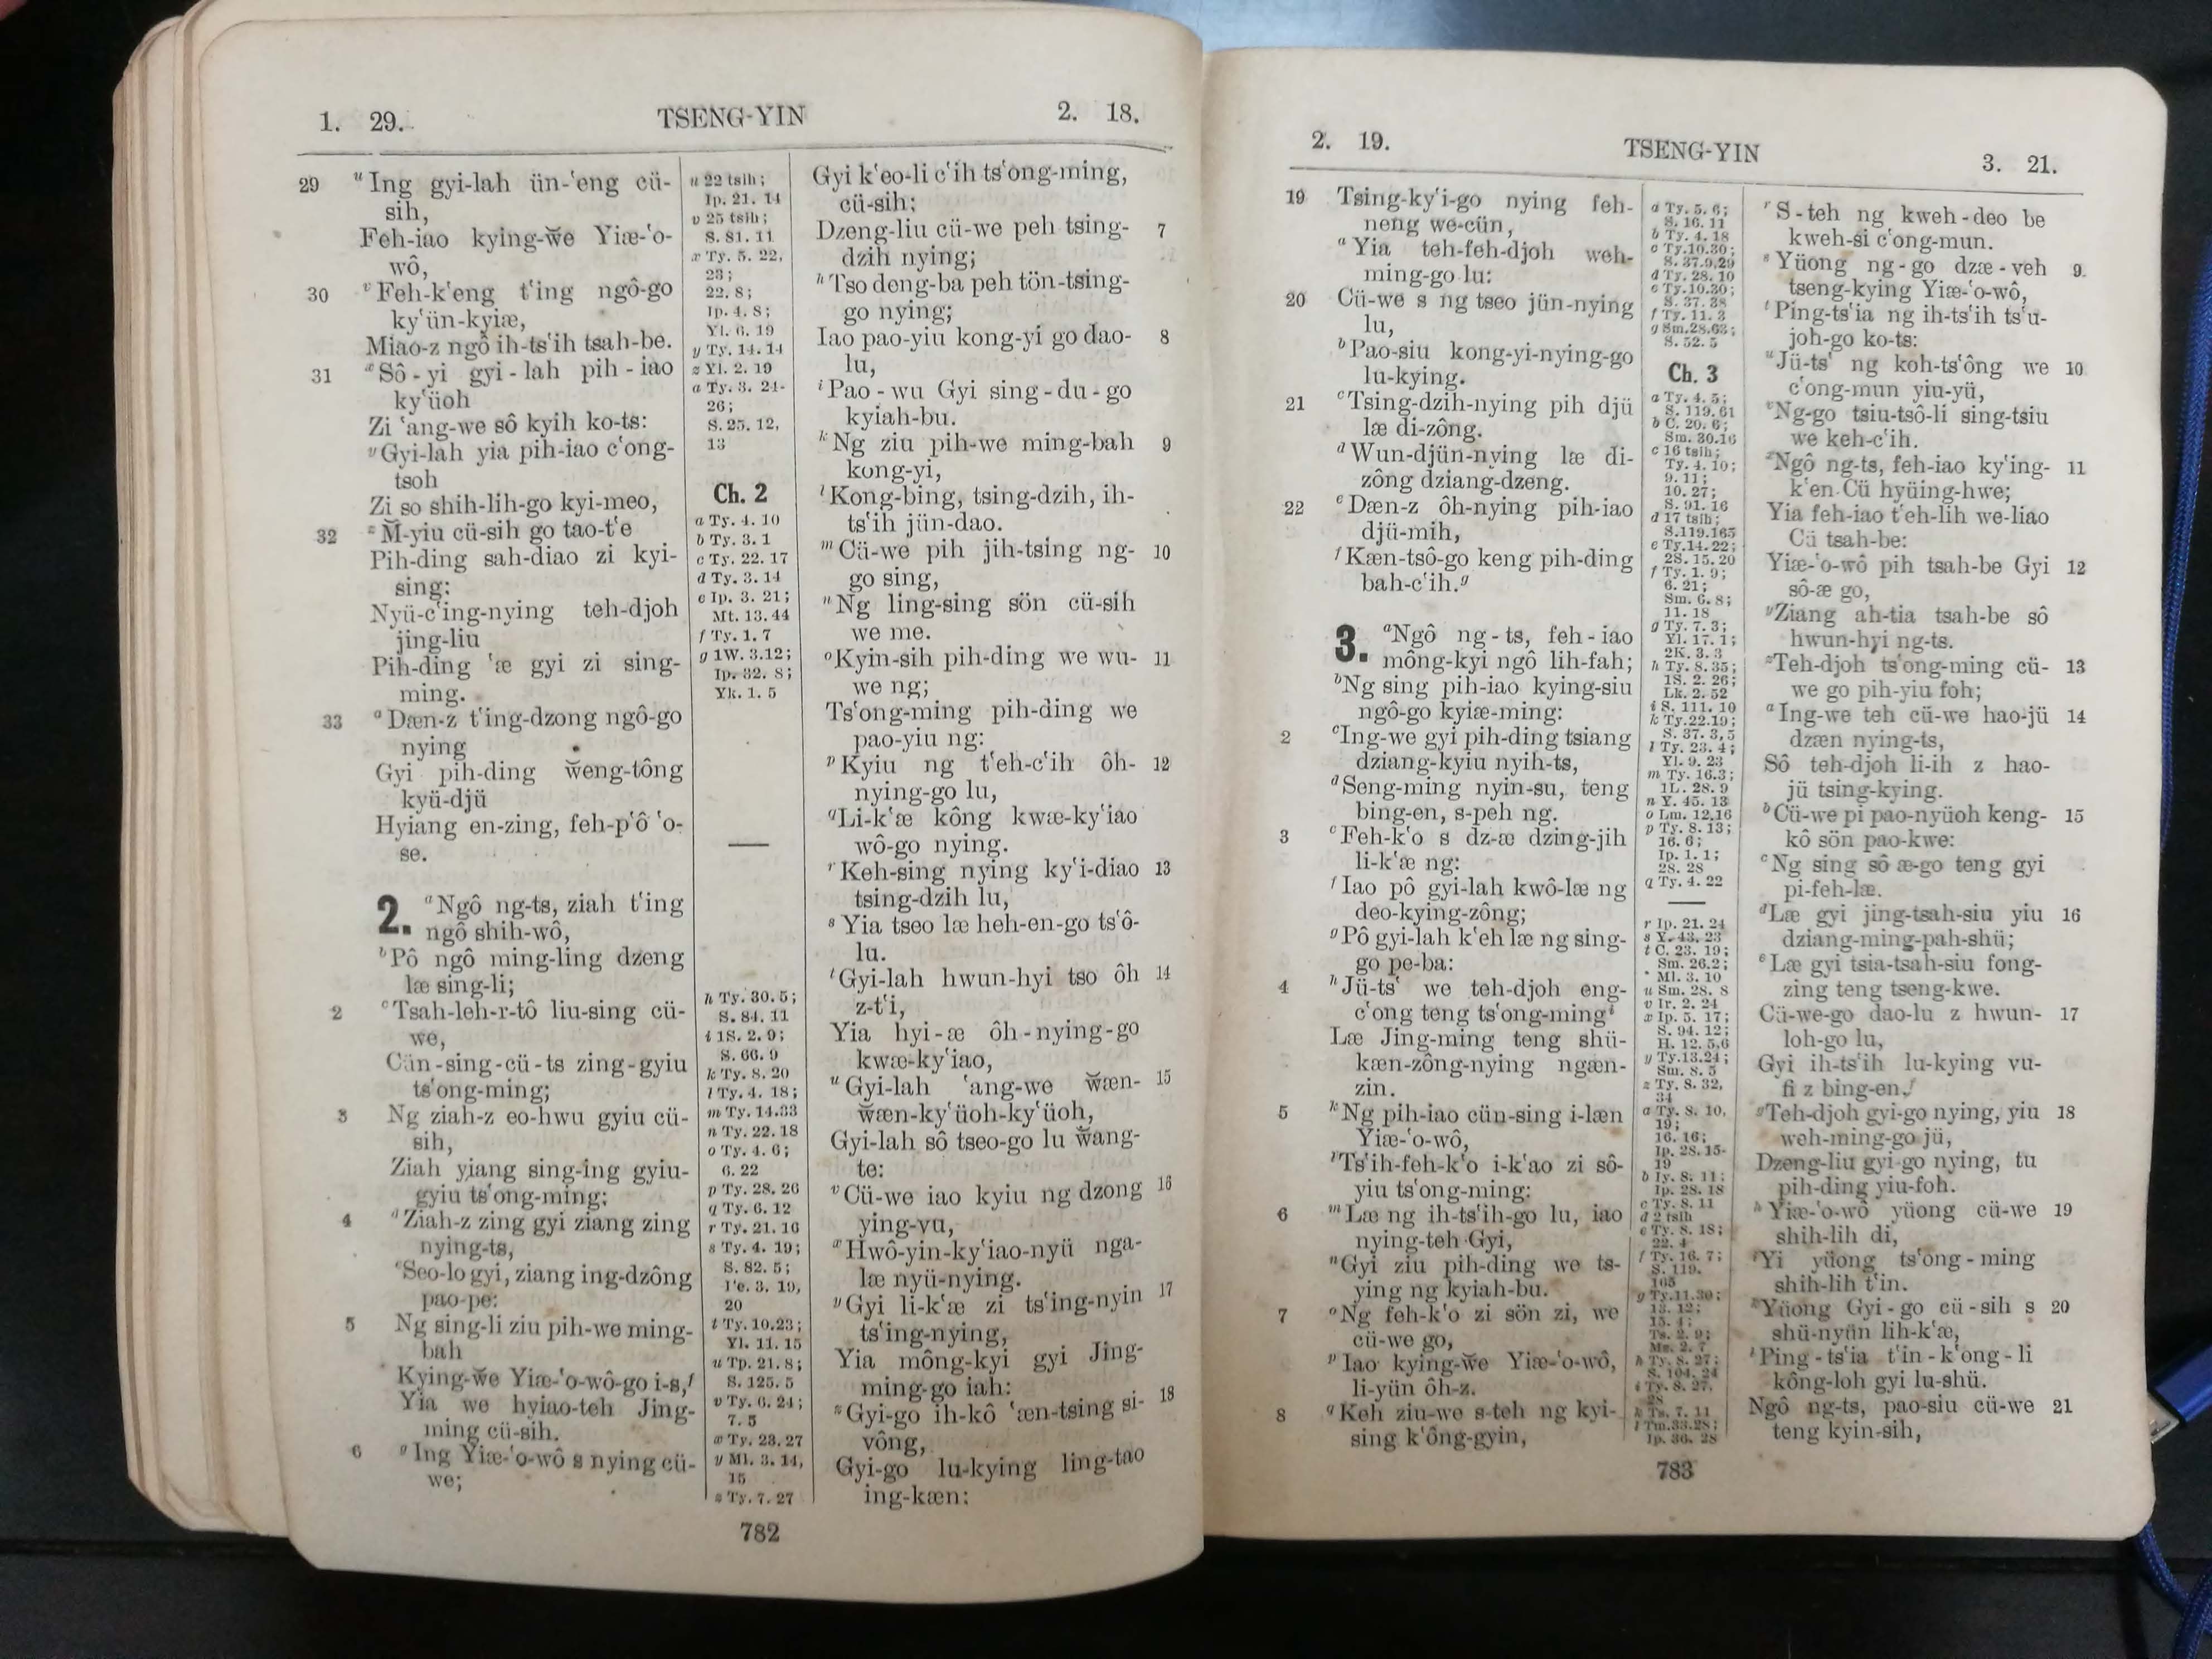 1. 29. TSENG-YIN 2. 18.
29 u Ing gyi-lah ün-ʻeng cü-
sih,
Feh-iao kying-w̆e Yiæ-ʻo-
wô,
30 v Feh-kʻeng tʻing ngô-go
kyʻün-kyiæ,
Miao-z ngô ih-tsʻih tsah-be.
31 x Sô-yi gyi-lah pih-iao
kyʻüoh
Zi ʻang-we sô kyih ko-ts:
y Gyi-lah yia pih-iao cʻong-
tsoh
Zi so shih-lih-go kyi-meo,
32 z M̆-yiu cü-sih go tao-tʻe
Pih-ding sah-diao zi kyi-
sing:
Nyü-cʻing-nying teh-djoh
jing-liu
Pih-ding ʻæ gyi zi sing-
ming.
33 a Dæn-z tʻing-dzong ngô-go
nying
Gyi pih-ding w̆eng-tông
kyü-djü
Hyiang en-zing, feh-pʻô ʻo-
se.
2. a Ngô ng-ts, ziah tʻing
ngô shih-wô,
b Pô ngô ming-ling dzeng
læ sing-li;
2 c Tsah-leh-r-tô liu-sing cü-
we,
Cün-sing-cü-ts zing-gyiu
tsʻong-ming;
3 Ng ziah-z eo-hwu gyiu cü-
sih,
Ziah yiang sing-ing gyiu-
gyiu tsʻong-ming;
4 d Ziah-z zing gyi ziang zing
nying-ts,
e Seo-lo gyi, ziang ing-dzông
pao-pe:
5 Ng sing-li ziu pih-we ming-
bah
Kying-w̆e Yiæ-ʻo-wô-go i-s, f
Yia we hyiao-teh Jing-
ming cü-sih.
6 g Ing Yiæ-ʻo-wô s nying cü-
we;
u 22 tsih;
Ip. 21. 14
v 25 tsih;
S. 81. 11
x Ty. 5. 22,
23;
22. 8;
Ip. 4. 8;
Yl. 6. 19
y Ty. 14. 14
z Yl. 2. 19
a Ty. 3. 24-
26;
S. 25. 12,
13
Ch. 2
a Ty. 4. 10
b Ty. 3. 1
c Ty. 22. 17
d Ty. 3. 14
e Ip. 3. 21;
Mt. 13. 44
f Ty. 1. 7
g 1W. 3. 12;
Ip. 32. 8;
Yk. 1. 5
h Ty. 30. 5;
S. 84. 11
i 1S. 2. 9;
S. 66. 9
k Ty. 8. 20
l Ty. 4. 18;
m Ty. 14. 33
n Ty. 22. 18
o Ty. 4. 6;
6. 22
p Ty. 28. 26
q Ty. 6. 12
r Ty. 21. 16
s Ty. 4. 19;
S. 82. 5;
1ʻe. 3. 19,
20
t Ty. 10. 23;
Yl. 11. 15
u Tp. 21. 8;
S. 125. 5
v Ty. 6. 24;
7. 5
x Ty. 23. 27
y Ml. 3. 14,
15
z Ty. 7. 27
Gyi kʻeo-li cʻih tsʻong-ming,
cü-sih;
Dzeng-liu cü-we peh tsing- 7
dzih nying;
h Tso deng-ba peh tön-tsing-
go nying;
Iao pao-yiu kong-yi go dao- 8
lu,
i Pao-wu Gyi sing-du-go
kyiah-bu.
k Ng ziu pih-we ming-bah 9
kong-yi,
l Kong-bing, tsing-dzih, ih-
tsʻih jün-dao.
m Cü-we pih jih-tsing ng- 10
go sing,
n Ng ling-sing sön cü-sih
we me.
o Kyin-sih pih-ding we wu- 11
we ng;
Tsʻong-ming pih-ding we
pao-yiu ng:
p Kyiu ng tʻeh-cʻih ôh- 12
nying-go lu,
q Li-kʻæ kông kwæ-kyʻiao
wô-go nying.
r Keh-sing nying kyʻi-diao 13
tsing-dzih lu,
s Yia tseo læ heh-en-go tsʻô-
lu.
t Gyi-lah hwun-hyi tso ôh 14
z-tʻi,
Yia hyi-æ ôh-nying-go
kwæ-kyʻiao,
u Gyi-lah ʻang-we w̆æn- 15
w̆æn-kyʻüoh-kyʻüoh,
Gyi-lah sô tseo-go lu w̆ang-
te:
v Cü-we iao kyiu ng dzong 16
ying-vu,
x Hwô-yin-kyʻiao-nyü nga-
læ nyü-nying.
y Gyi li-kʻæ zi tsʻing-nyin 17
tsʻing-nying,
Yia mông-kyi gyi Jing-
ming-go iah:
z Gyi-go ih-kô ʻæn-tsing si- 18
vông,
Gyi-go lu-kying ling-tao
ing-kæn:
782
2. 19. TSENG-YIN 3. 21.
19 Tsing-kyʻi-go nying feh-
neng we-cün,
a Yia teh-feh-djoh weh-
ming-go lu:
20 Cü-we s ng tseo jün-nying
lu,
b Pao-siu kong-yi-nying-go
lu-kying.
21 c Tsing-dzih-nying pih djü
læ di-zông.
d Wun-djün-nying læ di-
zông dziang-dzeng.
22 e Dæn-z ôh-nying pih-iao
djü-mih,
f Kæn-tsô-go keng pih-ding
bah-cʻih. g
3. a Ngô ng-ts, feh-iao
mông-kyi ngô lih-fah;
b Ng sing pih-iao kying-siu
ngô-go kyiæ-ming:
2 c Ing-we gyi pih-ding tsiang
dziang-kyiu nyih-ts,
d Seng-ming nyin-su, teng
bing-en, s-peh ng.
3 e Feh-kʻo s dz-æ dzing-jih
li-kʻæ ng:
f Iao pô gyi-lah kwô-læ ng
deo-kying-zông;
g Pô gyi-lah kʻeh læ ng sing-
go pe-ba:
4 h Jü-tsʻ we teh-djoh eng-
cʻong teng tsʻong-ming i
Læ Jing-ming teng shü-
kæn-zông-nying ngæn-
zin.
5 k Ng pih-iao cün-sing i-læn
Yiæ-ʻo-wô,
l Tsʻih-feh-kʻo i-kʻao zi sô-
yiu tsʻong-ming:
6 m Læ ng ih-tsʻih-go lu, iao
nying-teh Gyi,
n Gyi ziu pih-ding we ts-
ying ng kyiah-bu.
7 o Ng feh-kʻo zi sön zi, we
cü-we go,
p Iao kying-w̆e Yiæ-ʻo-wô,
li-yün ôh-z.
8 q Keh ziu-we s-teh ng kyi-
sing kʻông-gyin,
a Ty. 5. 6;
S. 16. 11
b Ty. 4. 18
c Ty. 10. 30;
S. 37. 9, 29
d Ty. 28. 10
e Ty. 10. 30;
S. 37. 38
f Ty. 11. 3
g Sm. 28. 63;
S. 52. 5
Ch. 3
a Ty. 4. 5;
S. 119. 61
b C. 20. 6;
Sm. 30. 16
c 16 tsih;
Ty. 4. 10;
9. 11;
10. 27;
S. 91. 16
d 17 tsih;
S. 119. 165
e Ty. 14. 22;
28. 15. 20
f Ty. 1. 9;
6. 21;
Sm. 6. 8;
11. 18
g Ty. 7. 3;
Yl. 17. 1;
2K. 3. 3
h Ty. 8. 35;
1S. 2. 26;
Lk. 2. 52
i S. 111. 10
k Ty. 22. 19;
S. 37. 3, 5
l Ty. 23. 4;
Yl. 9. 23
m Ty. 16. 3;
1L. 28. 9
n Y. 45. 13
o Lm. 12. 16
p Ty. 8. 13;
16. 6;
Ip. 1. 1;
28. 28
q Ty. 4. 22
r Ip. 21. 24
s Y. 43. 23
t C. 23. 19;
Sm. 26. 2;
Ml. 3. 10
u Sm. 28. 8
v Ir. 2. 24
x Ip. 5. 17;
S. 94. 12;
H. 12. 5, 6
y Ty. 13. 24;
Sm. 8. 5
z Ty. 8. 32,
34
a Ty. 8. 10,
19;
16. 16;
Ip. 28. 15-
19
b Iy. 8. 11;
Ip. 28. 18
c Ty. 8. 11
d 2 tsih
e Ty. 8. 18;
22. 4
f Ty. 16. 7;
S. 119.
165
g Ty. 11. 30;
13. 12;
15. 4;
Ts. 2. 9;
Ms. 2. 7
h Ty. 8. 27;
S. 104. 24
i Ty. 8. 27,
28
k Ts. 7. 11
l Tm. 33. 28;
Ip. 36. 28
r S-teh ng kweh-deo be
kweh-si cʻong-mun.
s Yüong ng-go dzæ-veh 9
tseng-kying Yiæ-ʻo-wô,
t Ping-tsʻia ng ih-tsʻih tsʻu-
joh-go ko-ts:
u Jü-tsʻ ng koh-tsʻông we 10
cʻong-mun yiu-yü,
v Ng-go tsiu-tsô-li sing-tsiu
we keh-cʻih.
x Ngô ng-ts, feh-iao kyʻing- 11
kʻen Cü hyüing-hwe;
Yia feh-iao tʻeh-lih we-liao
Cü tsah-be:
Yiæ-ʻo-wô pih tsah-be Gyi 12
sô-æ go,
y Ziang ah-tia tsah-be sô
hwun-hyi ng-ts.
z Teh-djoh tsʻong-ming cü- 13
we go pih-yiu foh;
a Ing-we teh cü-we hao-jü 14
dzæn nying-ts,
Sô teh-djoh li-ih z hao-
jü tsing-kying.
b Cü-we pi pao-nyüoh keng- 15
kô sön pao-kwe:
c Ng sing sô æ-go teng gyi
pi-feh-læ.
d Læ gyi jing-tsah-siu yiu 16
dziang-ming-pah-shü;
e Læ gyi tsia-tsah-siu fong-
zing teng tseng-kwe.
Cü-we-go dao-lu z hwun- 17
loh-go lu,
Gyi ih-tsʻih lu-kying vu-
fi z bing-en. f
g Teh-djoh gyi-go nying, yiu 18
weh-ming-go jü,
Dzeng-liu gyi-go nying, tu
pih-ding yiu-foh.
h Yiæ-ʻo-wô yüong cü-we 19
shih-lih di,
i Yi yüong tsʻong-ming
shih-lih tʻin.
k Yüong Gyi-go cü-sih s 20
shü-nyün lih-kʻæ,
l Ping-tsʻia tʻin-kʻong-li
kông-loh gyi lu-shü.
Ngô ng-ts, pao-siu cü-we 21
teng kyin-sih,
783